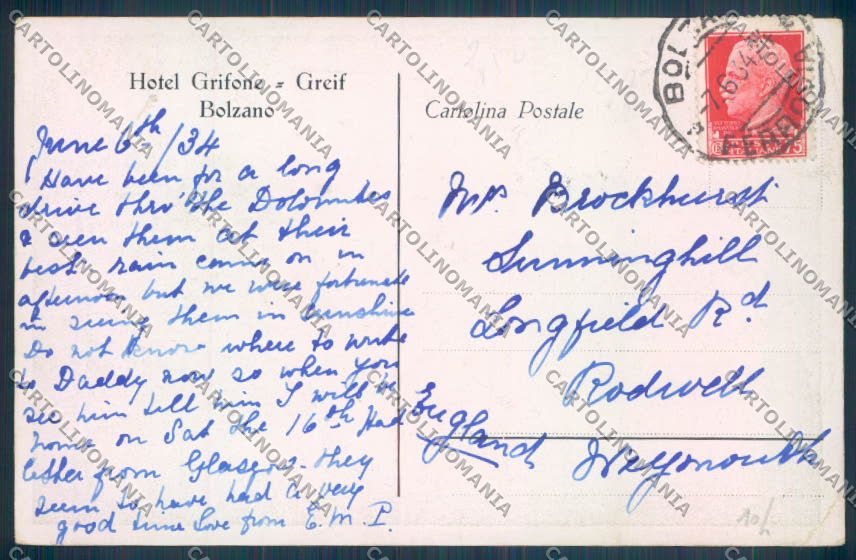 Hotel Grifone = Greif
Bolzano
Cartolina Postale
June 6th/34
Have been for a long
drive thro' the Dolomites
& seen them at their
best rain came on in
afternoon but we were fortunate
in seeing them in sunshine
Do not know where to write
to Daddy now so when you
see him tell him I will be
home on Sat the 16th Had
letter from Glasgow they
seem to have had a very
good time Love from E.M.P.
Brockhurst
Sunninghill
Longfield Rd
Rodwell
Weymouth
England
CARTOLINOMANIA